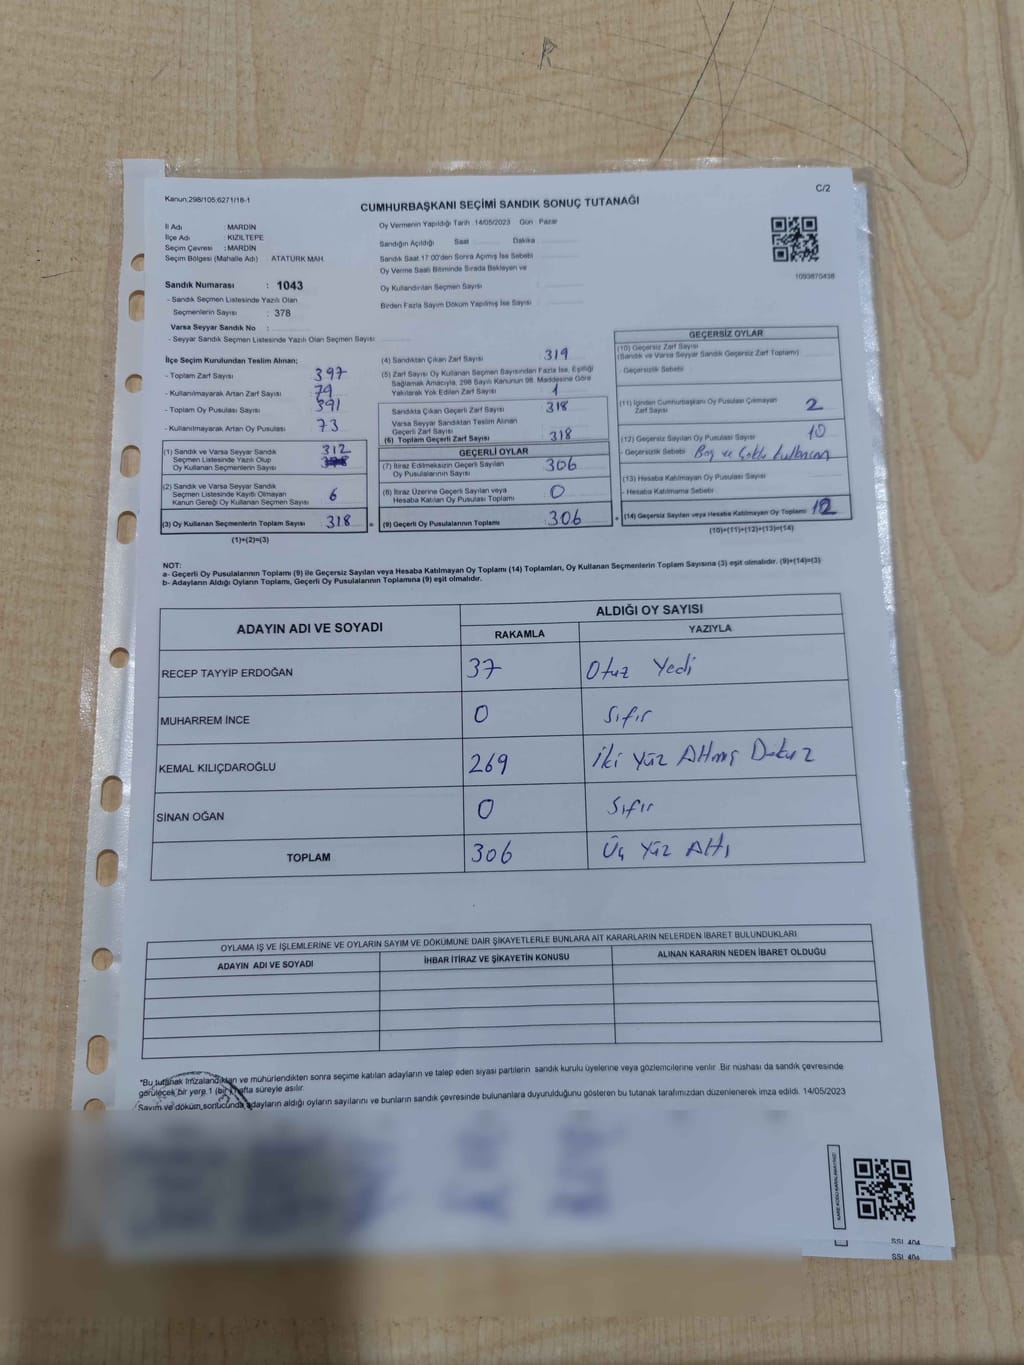 R
Kanun:298/105;6271/18-1
C/2
CUMHURBAŞKANI SEÇİMİ SANDIK SONUÇ TUTANAĞI
İl Adı : MARDİN
İlçe Adı : KIZILTEPE
Seçim Çevresi : MARDİN
Seçim Bölgesi (Mahalle Adı) : ATATÜRK MAH.
Sandık Numarası : 1043
- Sandık Seçmen Listesinde Yazılı Olan
Seçmenlerin Sayısı : 378
Varsa Seyyar Sandık No :
- Seyyar Sandık Seçmen Listesinde Yazılı Olan Seçmen Sayısı:
Oy Vermenin Yapıldığı Tarih :14/05/2023 Gün : Pazar
Sandığın Açıldığı Saat Dakika
Sandık Saat 17:00'den Sonra Açılmış İse Sebebi
Oy Verme Saati Bitiminde Sırada Bekleyen ve
Oy Kullandırılan Seçmen Sayısı :
Birden Fazla Sayım Döküm Yapılmış İse Sayısı :
1093870438
İlçe Seçim Kurulundan Teslim Alınan;
- Toplam Zarf Sayısı : 397
- Kullanılmayarak Artan Zarf Sayısı : 79
- Toplam Oy Pusulası Sayısı : 391
- Kullanılmayarak Artan Oy Pusulası : 73
(1) Sandık ve Varsa Seyyar Sandık
Seçmen Listesinde Yazılı Olup
Oy Kullanan Seçmenlerin Sayısı : 312
(2) Sandık ve Varsa Seyyar Sandık
Seçmen Listesinde Kayıtlı Olmayan
Kanun Gereği Oy Kullanan Seçmen Sayısı : 6
(3) Oy Kullanan Seçmenlerin Toplam Sayısı : 318
(1)+(2)=(3)
(4) Sandıktan Çıkan Zarf Sayısı : 319
(5) Zarf Sayısı Oy Kullanan Seçmen Sayısından Fazla İse, Eşitliği
Sağlamak Amacıyla, 298 Sayılı Kanunun 98. Maddesine Göre
Yakılarak Yok Edilen Zarf Sayısı : 1
Sandıkta Çıkan Geçerli Zarf Sayısı : 318
Varsa Seyyar Sandıktan Teslim Alınan
Geçerli Zarf Sayısı :
(6) Toplam Geçerli Zarf Sayısı : 318
GEÇERLİ OYLAR
(7) İtiraz Edilmeksizin Geçerli Sayılan
Oy Pusulalarının Sayısı : 306
(8) İtiraz Üzerine Geçerli Sayılan veya
Hesaba Katılan Oy Pusulası Toplamı : 0
(9) Geçerli Oy Pusulalarının Toplamı : 306
GEÇERSİZ OYLAR
(10) Geçersiz Zarf Sayısı
(Sandık ve Varsa Seyyar Sandık Geçersiz Zarf Toplamı)
- Geçersizlik Sebebi
(11) İçinden Cumhurbaşkanı Oy Pusulası Çıkmayan
Zarf Sayısı 2
(12) Geçersiz Sayılan Oy Pusulası Sayısı 10
- Geçersizlik Sebebi Boş ve Çoklu kullanım
(13) Hesaba Katılmayan Oy Pusulası Sayısı
- Hesaba Katılmama Sebebi
(14) Geçersiz Sayılan veya Hesaba Katılmayan Oy Toplamı 12
(10)+(11)+(12)+(13)=(14)
NOT:
a- Geçerli Oy Pusulalarının Toplamı (9) ile Geçersiz Sayılan veya Hesaba Katılmayan Oy Toplamı (14) Toplamları, Oy Kullanan Seçmenlerin Toplam Sayısına (3) eşit olmalıdır. (9)+(14)=(3)
b- Adayların Aldığı Oyların Toplamı, Geçerli Oy Pusulalarının Toplamına (9) eşit olmalıdır.
ADAYIN ADI VE SOYADI ALDIĞI OY SAYISI
RAKAMLA YAZIYLA
RECEP TAYYİP ERDOĞAN 37 Otuz Yedi
MUHARREM İNCE 0 Sıfır
KEMAL KILIÇDAROĞLU 269 İki Yüz Altmış Dokuz
SİNAN OĞAN 0 Sıfır
TOPLAM 306 Üç Yüz Altı
OYLAMA İŞ VE İŞLEMLERİNE VE OYLARIN SAYIM VE DÖKÜMÜNE DAİR ŞİKAYETLERLE BUNLARA AİT KARARLARIN NELERDEN İBARET BULUNDUKLARI
ADAYIN ADI VE SOYADI İHBAR İTİRAZ VE ŞİKAYETİN KONUSU ALINAN KARARIN NEDEN İBARET OLDUĞU
*Bu tutanak İmzalandıktan ve mühürlendikten sonra seçime katılan adayların ve talep eden siyasi partilerin sandık kurulu üyelerine veya gözlemcilerine verilir. Bir nüshası da sandık çevresinde
görülecek bir yere 1 (bir) hafta süreyle asılır.
Sayım ve döküm sonucunda adayların aldığı oyların sayılarını ve bunların sandık çevresinde bulunanlara duyurulduğunu gösteren bu tutanak tarafımızdan düzenlenerek imza edildi. 14/05/2023
KARE KODU KARALAMAYINIZ!
SSİ 404
SSİ 404